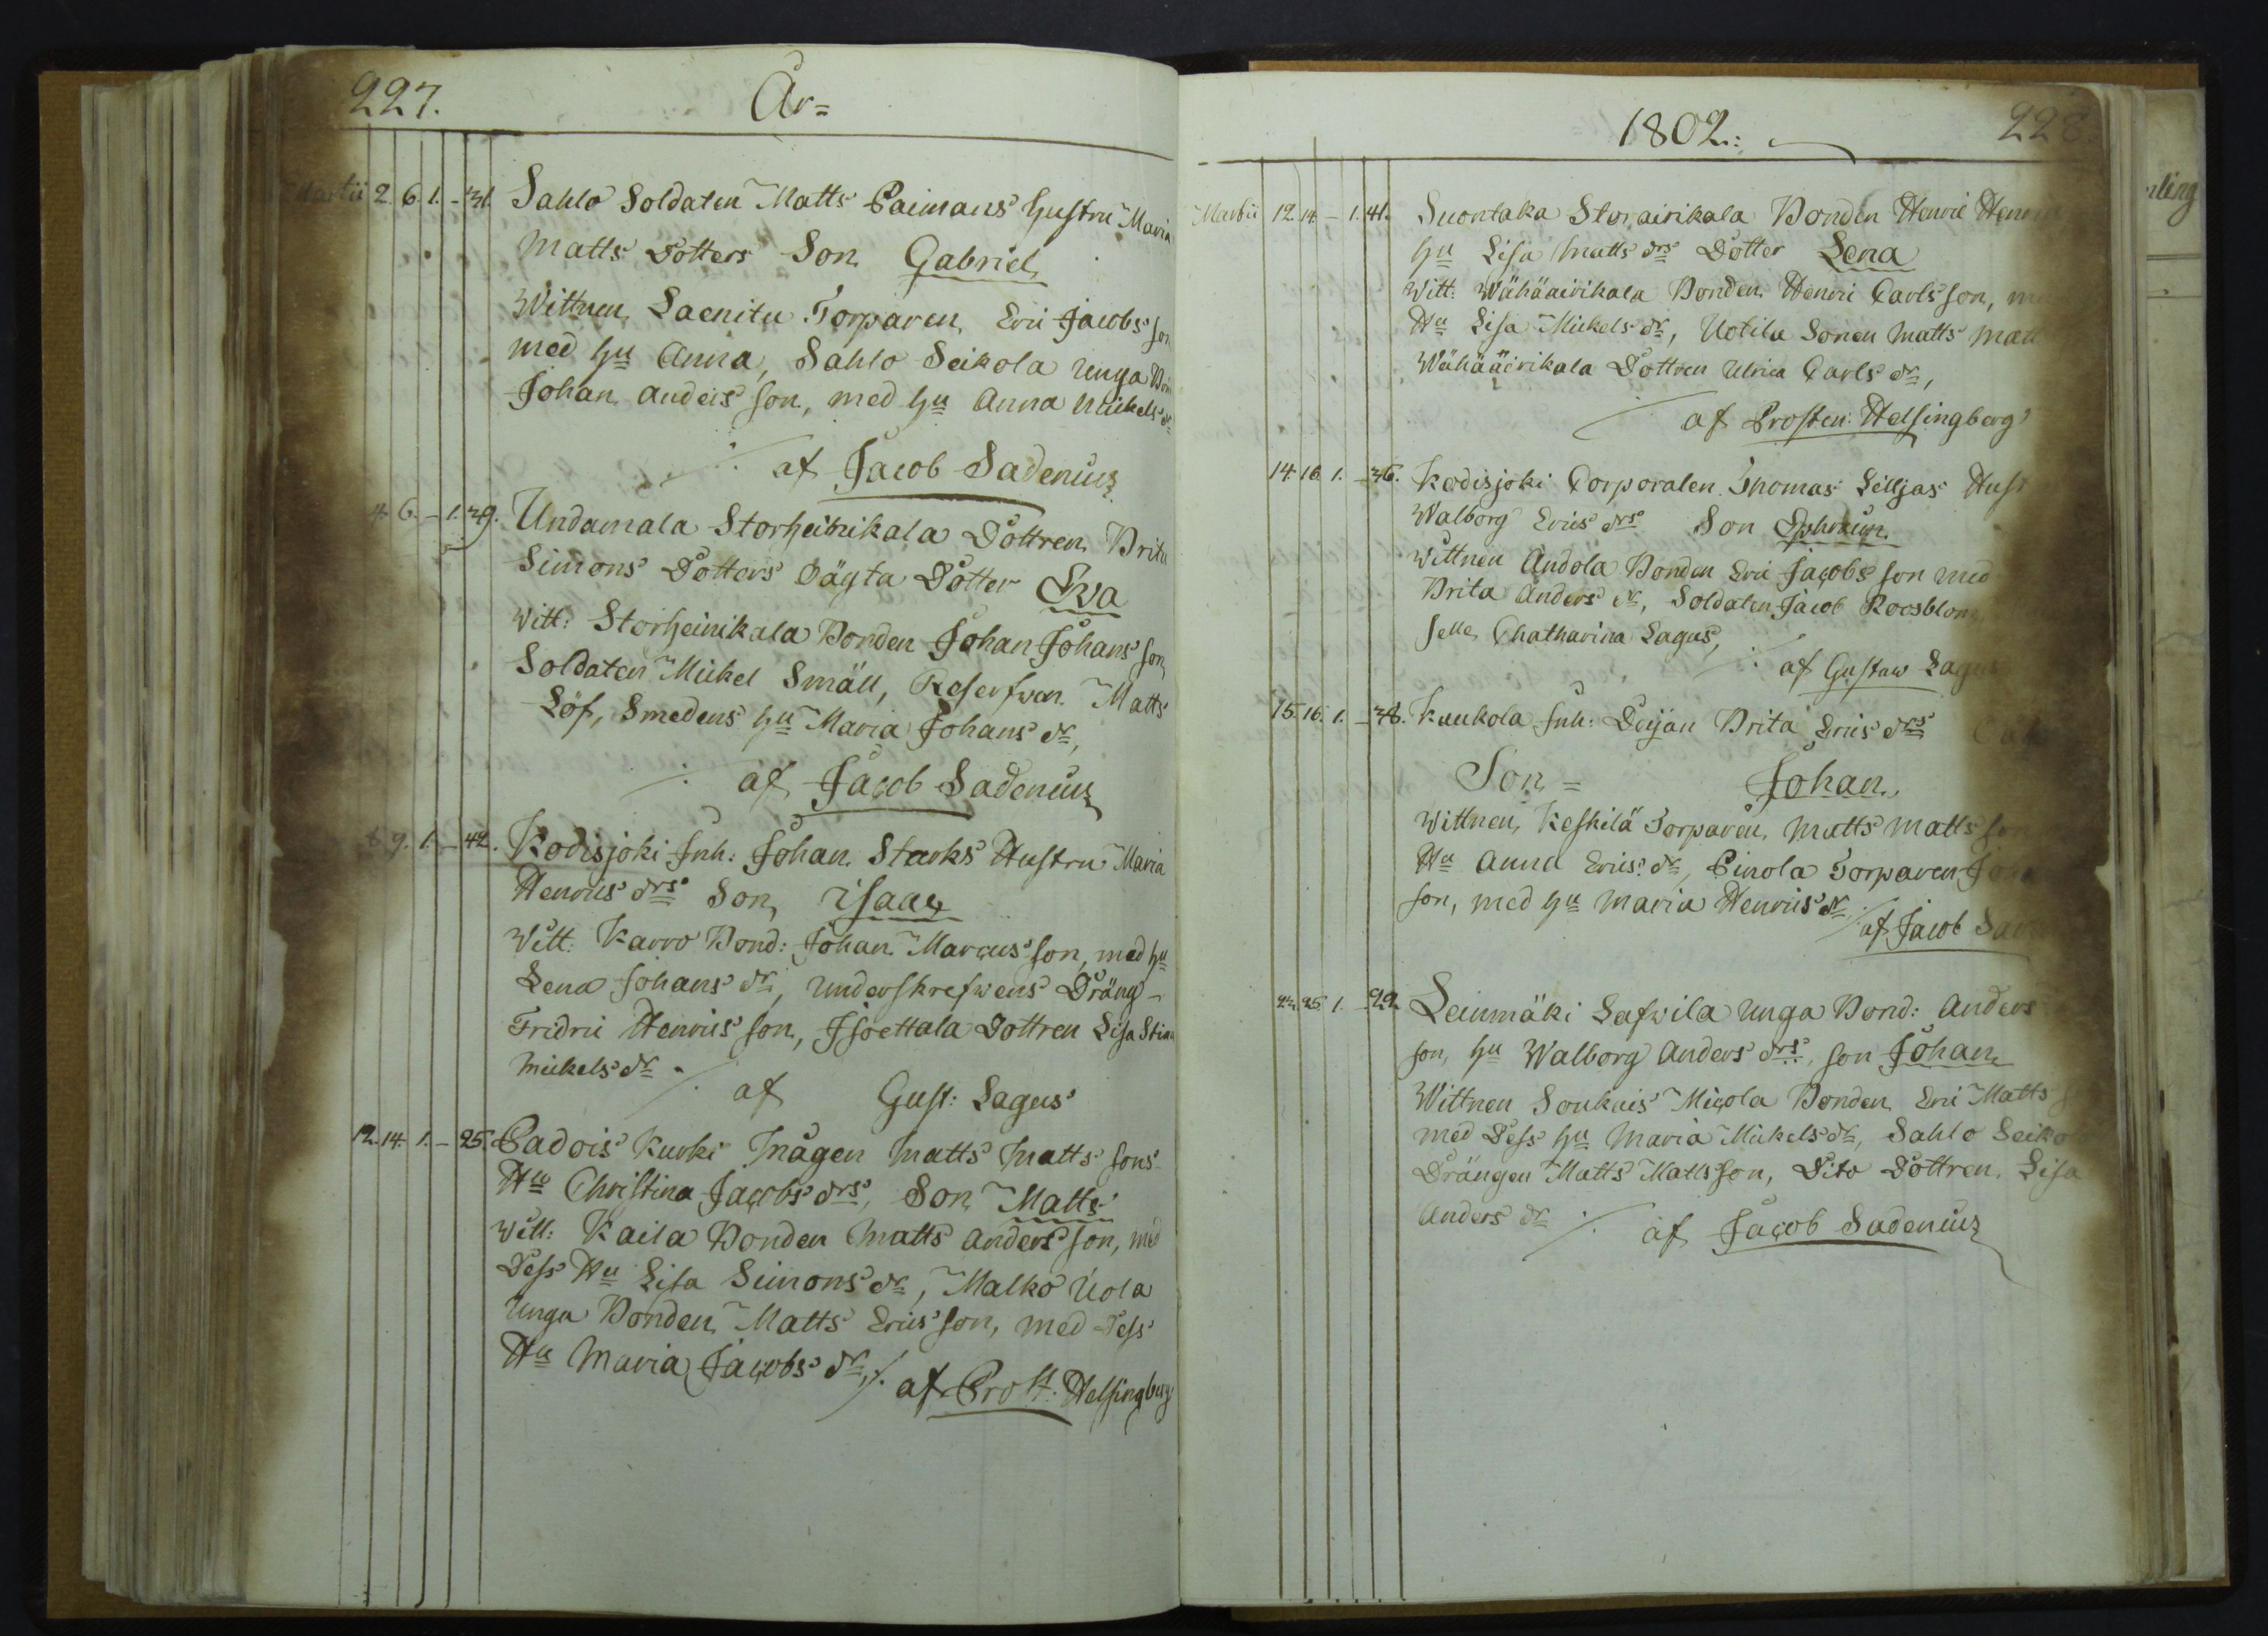 227.
År=
Martii 2. 6. 1. - 31. Sahlo Soldaten Matts Paimans hustru Maria
Matts Dotters Son Gabriel
Wittnen, Torparen, Eric Jacobs son
med hu Anna, Sahlo Seikola unga
Johan Anders son, med hu Anna Mickels dr
./. af Jacob Sadenius
4. 6. - 1. 29. Undamala Storheinikala Dottren Brita
Simons Dotters oägta Dotter Eva
Witt: Storheinikala Bonden Johan Johans son,
Soldaten Mickel Smäll, Reserfven Matts
Löf, Smedens hu Maria Johans dr,
./. af Jacob Sadenius
8. 9. 1. - 42. Kodisjoki Inh: Johan Starks Hustru Maria
Henrics drs Son, Isaac
Witt: Karro Bond: Johan Marcus son, med hu
Lena Johans dr, underskrefwens Dräng
Fridric Henrics son, Dottren Lisa Stina
Mickels dr
./. af Gust: Lagus
12. 14. 1. - 25. Padois Kurki Mågen Matts Matts sons
Hu Christina Jacobs drs, Son Matts
Witt: Kaila Bonden Matts Anders son, med
Dess Hu Lisa Simons dr, Malko Uola
Unga Bonden Matts Erics son, med Dess
Hu Maria Jacobs dr, ./. af Prost: Helsingberg
1802:
228
Martii 12. 14. - 1. 41. Suontaka Storäirikala Bonden Henric
hu Lisa Matts drs Dotter Lena
Witt: Wähääirikala Bonden Henric Carls son,
Hu Lisa Mickels dr, Uotila Sonen Matts
Wähääirikala Dottren Ulrica Carls dr,
./. af Prosten: Helsingberg
14. 16. 1. - 36. Kodisjoki Corporalen Thomas Lilljas
Walborg Erics drs Son Ephraim
Wittnen Andola Bonden Eric Jacobs son med
Brita Anders dr, Soldaten Jacob Roosblom
selle Chatharina Lagus,
./. af Gustaw Lagus
15. 16. 1. - 38. Kaukola Inh: Brita Erics drs
Son = Johan
Wittnen, Keskilä Torparen, Matts Matts
Hu Anna Erics dr, Pinola Torparen
son, med hu Maria Henrics dr
./. af Jacob
22. 25. 1. - 29. Leinmäki Lafwila unga Bond: Anders
son, hu Walborg Anders drs, son Johan
Wittnen Soukais Micola Bonden Eric Matts
med Dess hu Maria Mickels dr, Sahlo
Drängen Matts Matts son, Dito Dottren Lisa
Anders dr
./. af Jacob Sadenius